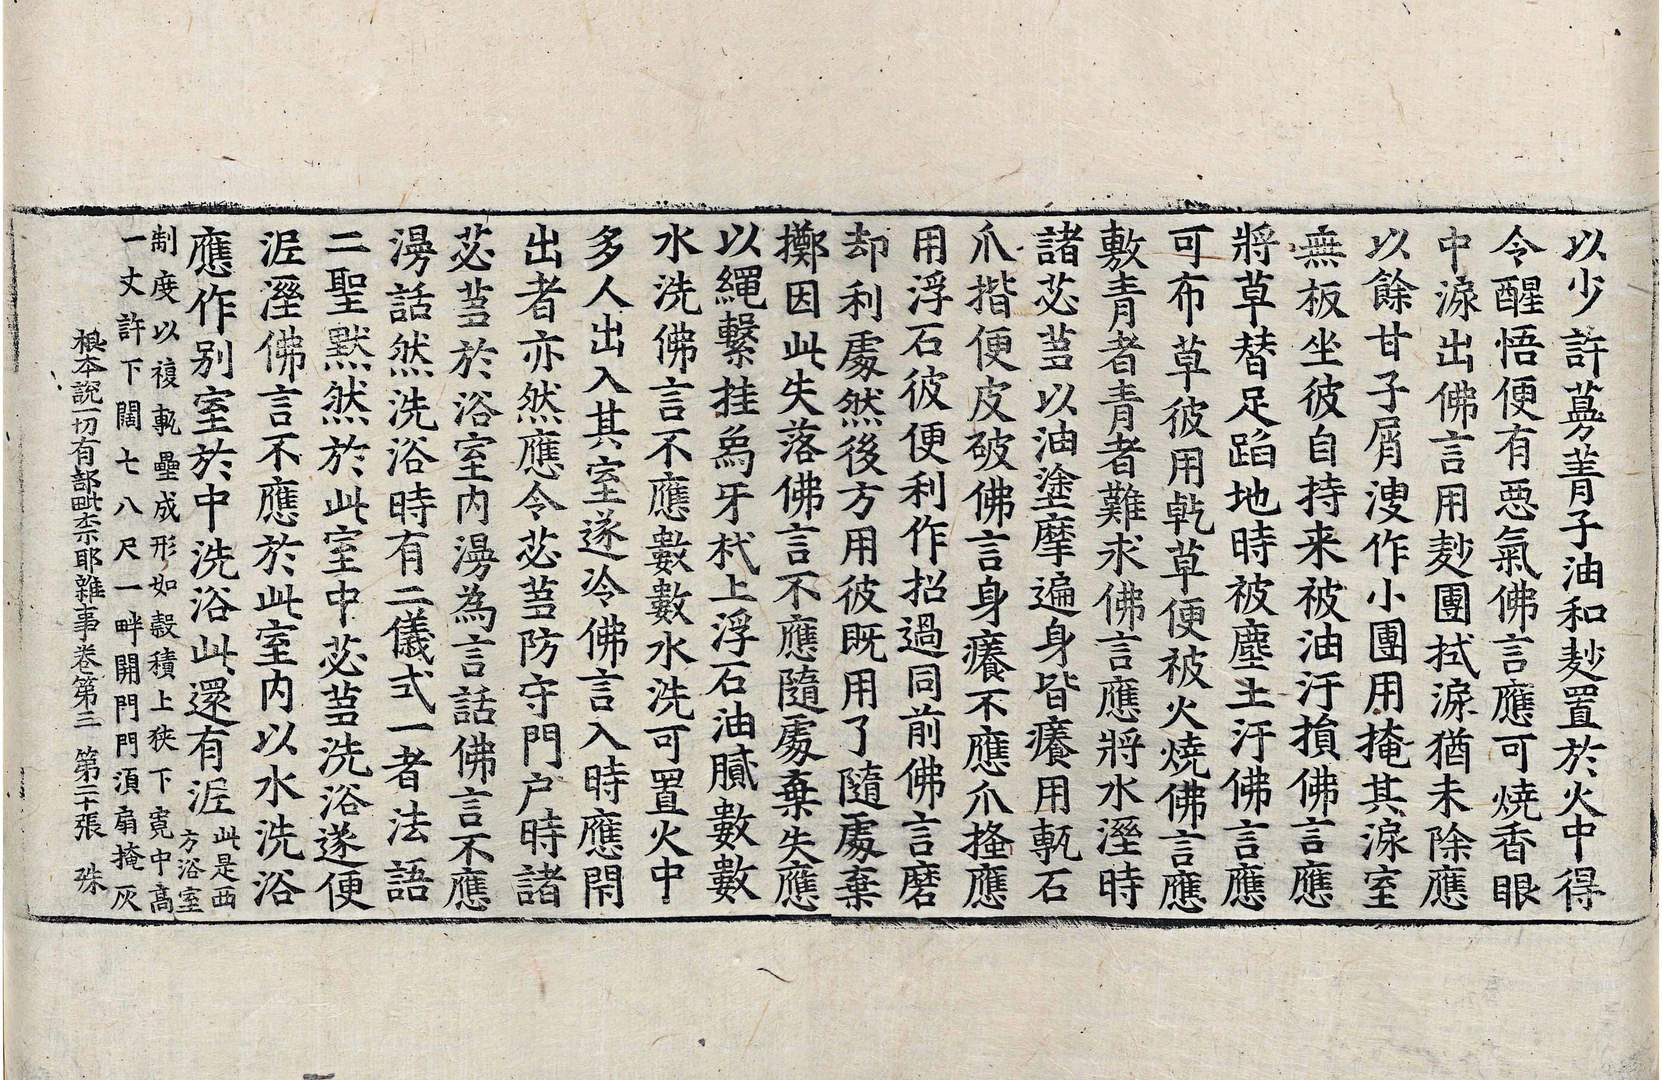 以少許蔓菁子油和麨置於火中得
令醒悟便有惡氣佛言應可燒香眼
中淚出佛言用麨團拭淚猶未除應
以餘甘子屑溲作小團用掩其淚室
無板坐彼自持来被油汙損佛言應
將草替足蹈地時被塵土汙佛言應
可布草彼用乹草便被火燒佛言應
敷青者青者難求佛言應將水溼時
諸苾芻以油塗摩遍身皆癢用甎石
爪揩便皮破佛言身癢不應爪搔應
用浮石彼便利作招過同前佛言磨
却利處然後方用彼既用了隨處棄
擲因此失落佛言不應隨處棄失應
以繩繫挂爲牙杙上浮石油膩數數
水洗佛言不應數數水洗可置火中
多人出入其室遂冷佛言入時應閇
出者亦然應令苾芻防守門户時諸
苾芻於浴室内漫為言話佛言不應
漫話然洗浴時有二儀式一者法語
二聖默然於此室中苾芻洗浴遂便
泥溼佛言不應於此室内以水洗浴
應作别室於中洗浴此還有泥此是西方浴室
制度以複甎壘成形如穀積上狹下寛中髙
一丈許下闊七八尺一畔開門門湏扇掩灰
根本說一切有部毗柰耶雜事卷第三 第二十張 珠